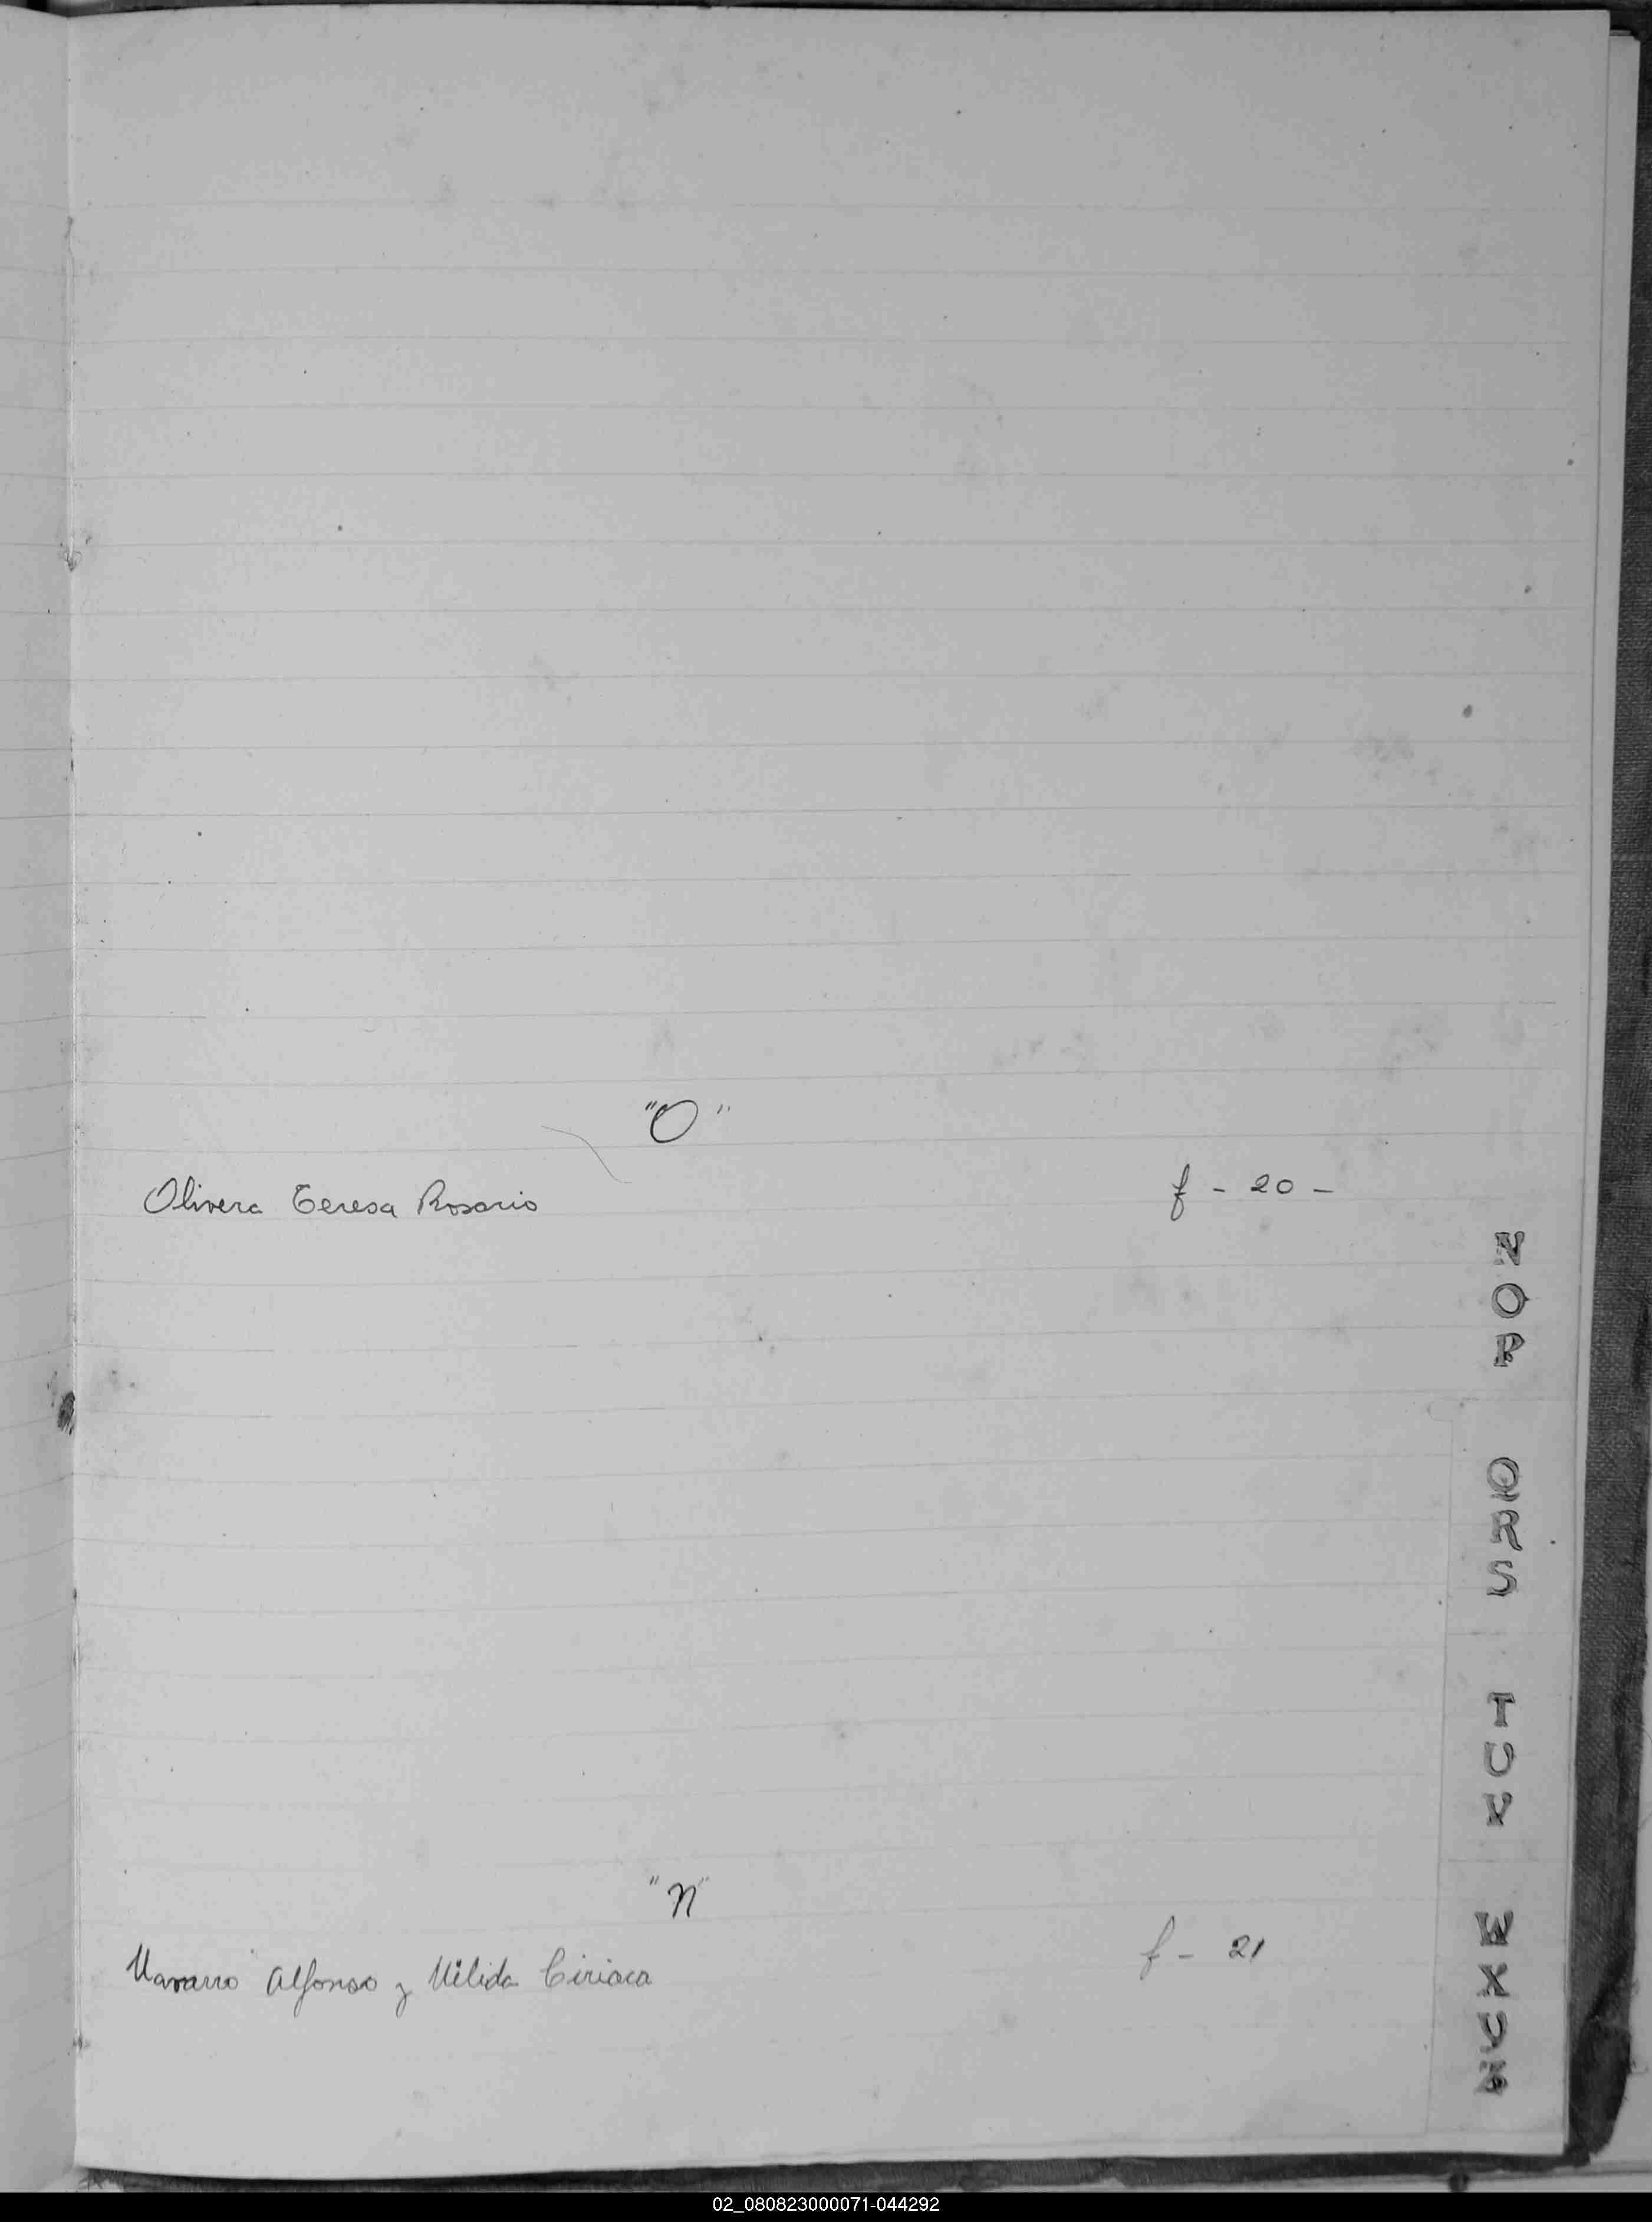 "O"
Olivera Teresa Rosario f - 20 -
N
O
P
Q
R
S
T
U
V
"N"
Navarro Alfonso y Nélida Ciriaca f - 21
W
X
02_080823000071-044292